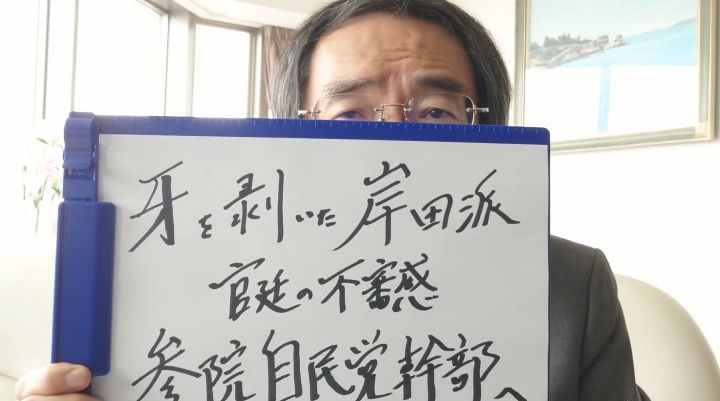 牙を剥いた岸田派
官廷の不審感
参院自民党幹部へ